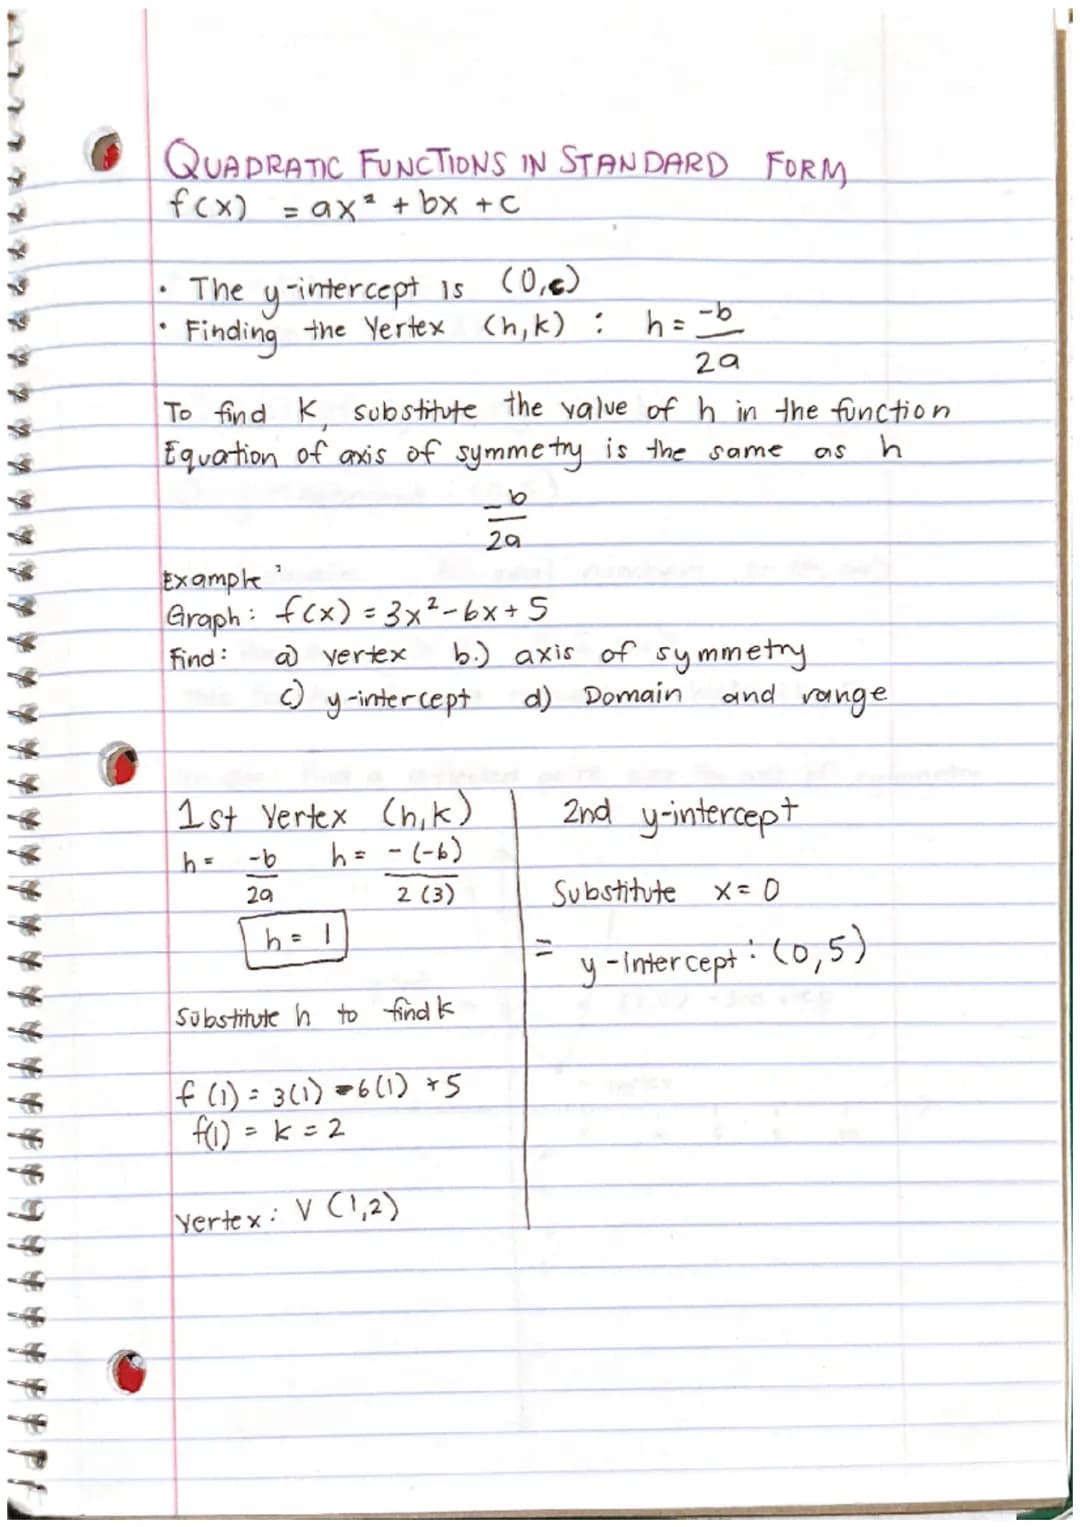 QUADRATIC FUNCTIONS IN STANDARD FORM
f(x) = ax² + bx + c
• The y-intercept is (0,c)
• Finding the Vertex (h,k) : h = -b/2a
To find k, substitute the value of h in the function
Equation of axis of symmetry is the same as h
-b/2a
Example:
Graph: f(x) = 3x² - 6x + 5
Find: a) vertex b.) axis of symmetry
c) y-intercept d) Domain and range
1st Vertex (h,k)
h = -b/2a h = -(-6)/2(3)
h = 1
Substitute h to find k
f(1) = 3(1) - 6(1) + 5
f(1) = k = 2
Vertex: V (1,2)
2nd y-intercept
Substitute x = 0
= y-intercept: (0,5)